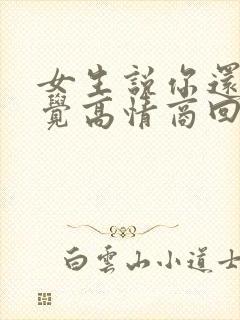 女生說你還
覺高情商回
白雲山小道士